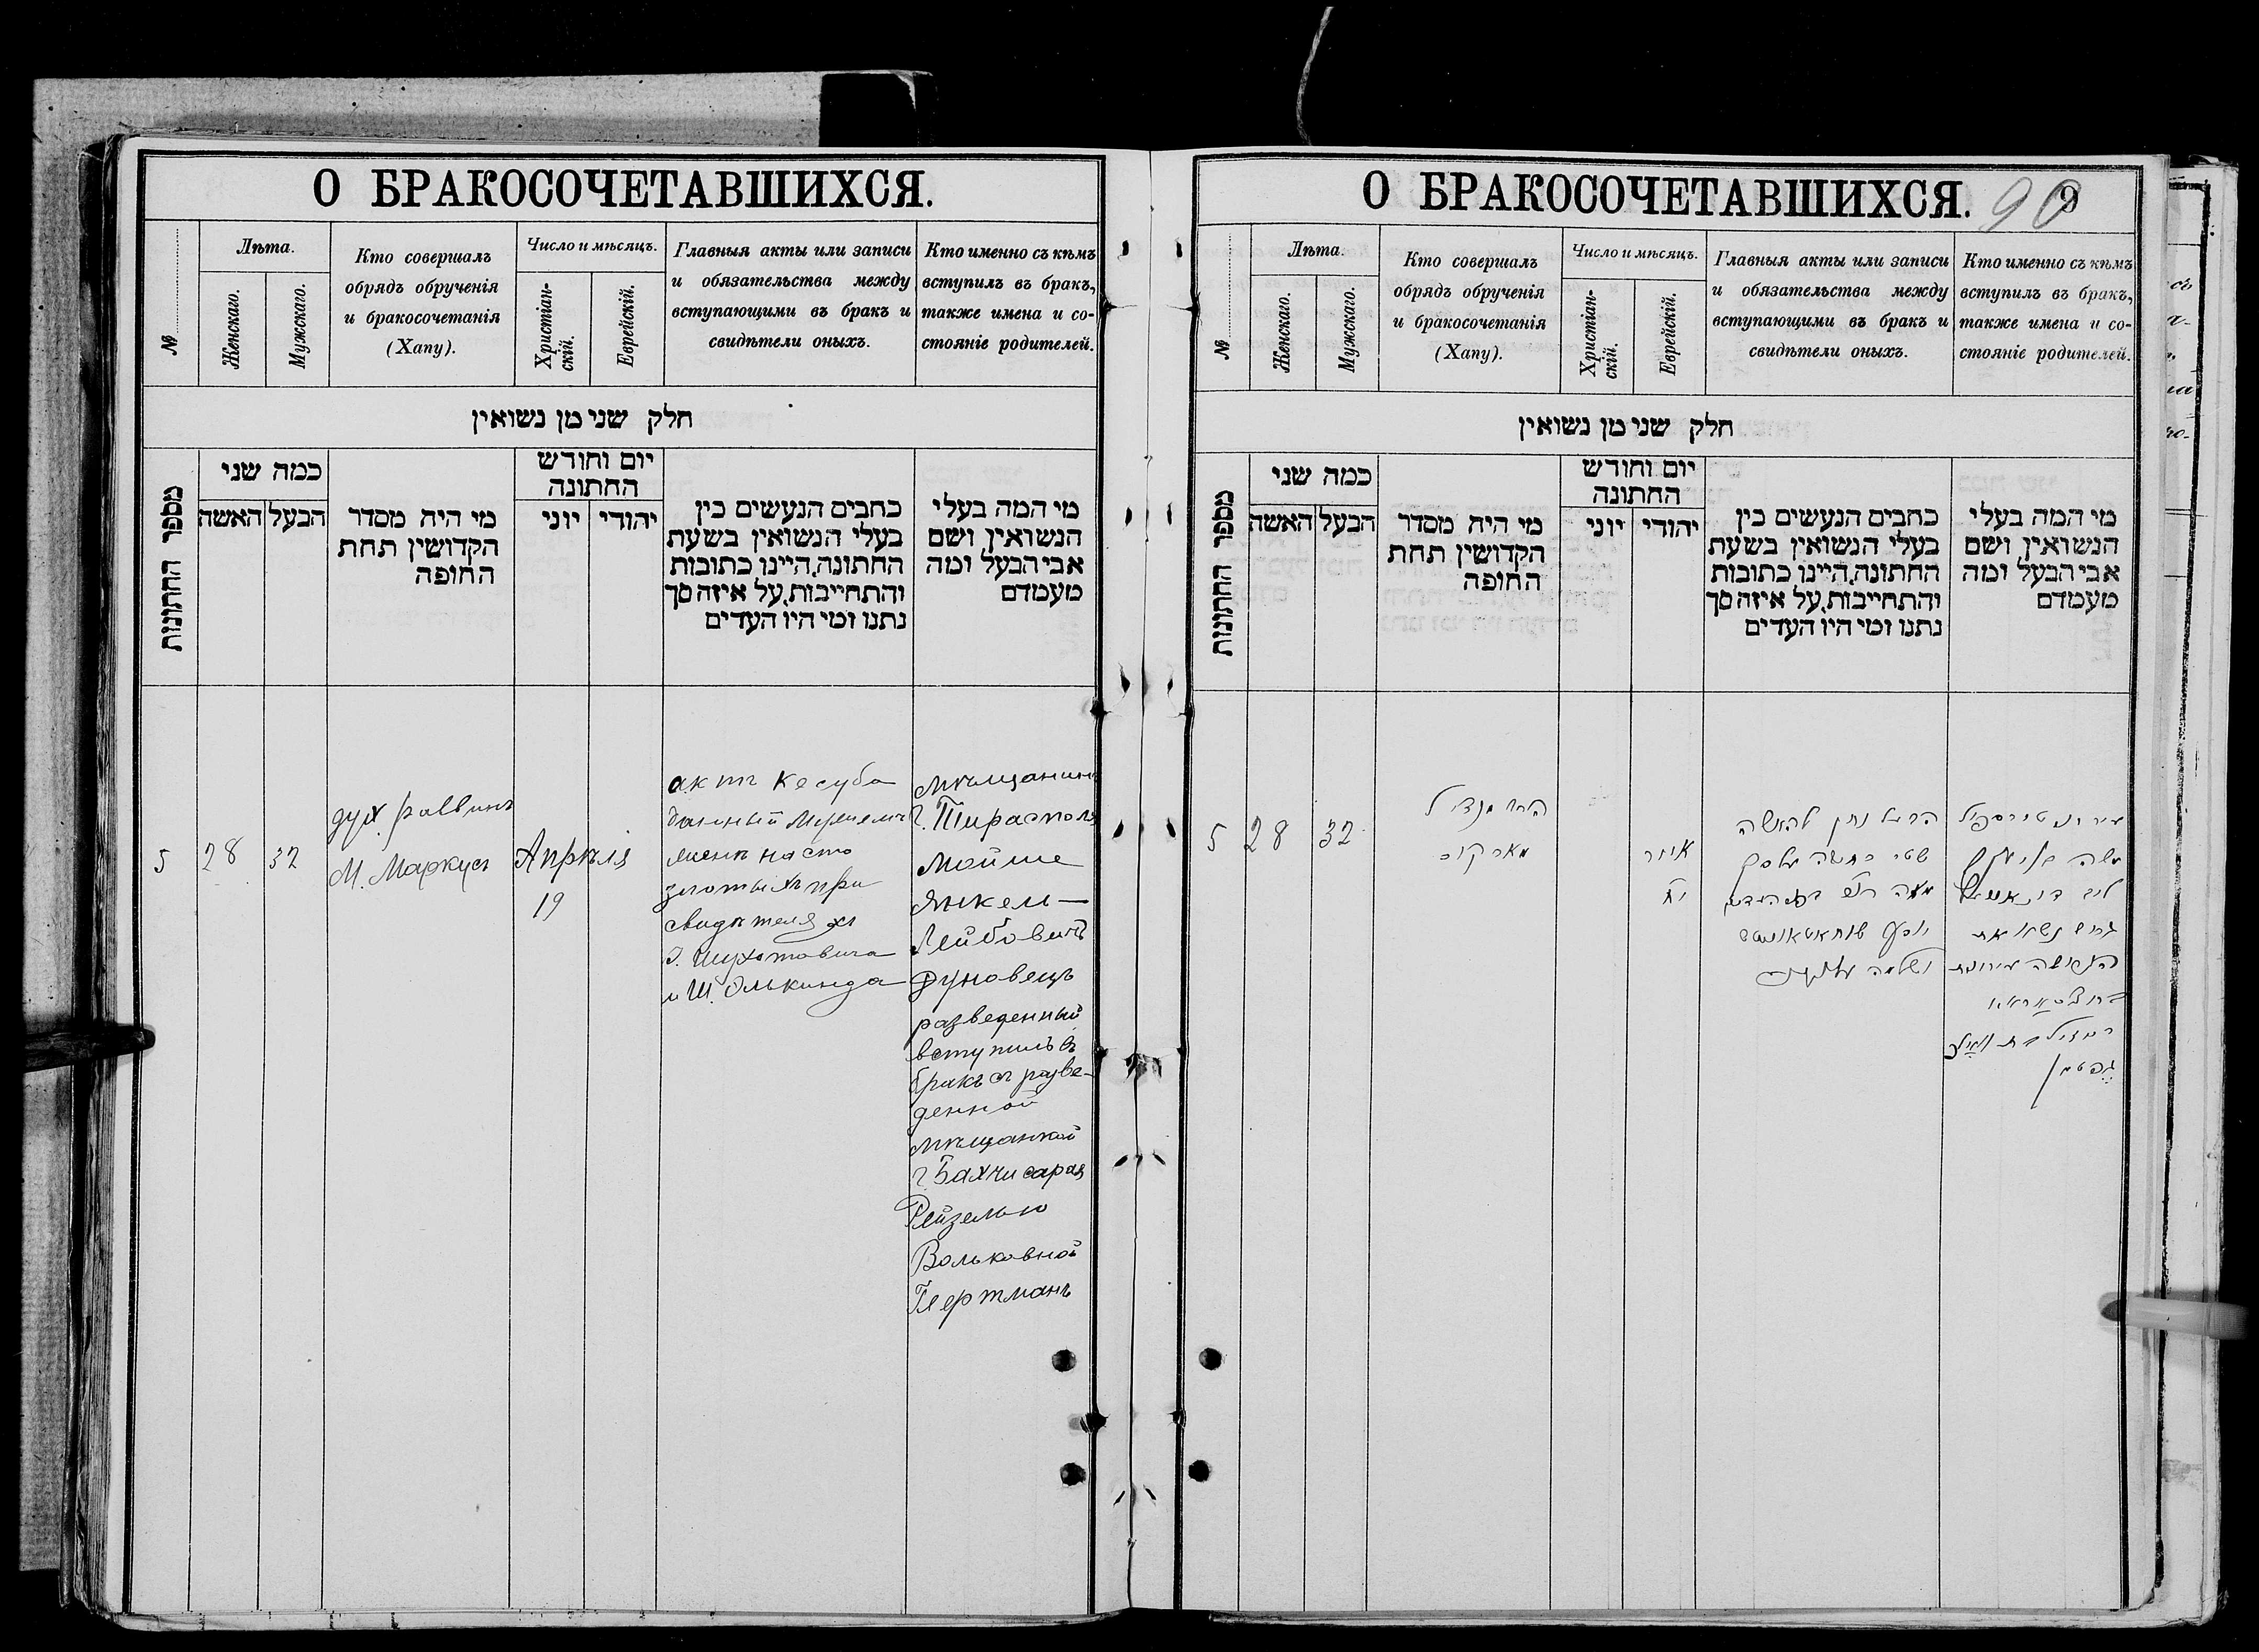 О БРАКОСОЧЕТАВШИХСЯ.
№
Лѣта.
Женскаго.
Мужскаго.
Кто совершалъ
обрядъ обрученія
и бракосочетанія
(Хапу).
Число и мѣсяцъ.
Христіан-
скій.
Еврейскій.
Главныя акты или записи
и обязательства между
вступающими въ бракъ и
свидѣтели оныхъ.
Кто именно съ кѣмъ
вступилъ въ бракъ,
также имена и со-
стояніе родителей.
חלק שני מן נשואין
מספר החתונות
כמה שני
הבעל
האשה
מי היה מסדר
הקדושין תחת
החופה
יום וחודש
החתונה
יהודי
יוני
כתבים הנעשים בין
בעלי הנשואין בשעת
החתונה, היינו כתובות
והתחייבות, על איזה סך
נתנו ומי היו העדים
מי המה בעלי
הנשואין ושם
אבי הבעל ומה
מעמדם
5
28
32
дух. раввинъ
М. Маркусъ
Апрѣля
19
актъ кесуба
данный мужемъ
женѣ на сто
злотыхъ при
свидѣтеляхъ
и Ш. Элькинда
мѣщанинъ
г. Тирасполя
Мойше
Янкель-
Лейбовичъ
Дуновецъ
разведенный
вступилъ въ
бракъ съ разве-
денной
мѣщанкой
г. Бахчисарая
Рейзелью
Вольковной
Гертманъ
О БРАКОСОЧЕТАВШИХСЯ.
90
9
№
Лѣта.
Женскаго.
Мужскаго.
Кто совершалъ
обрядъ обрученія
и бракосочетанія
(Хапу).
Число и мѣсяцъ.
Христіан-
скій.
Еврейскій.
Главныя акты или записи
и обязательства между
вступающими въ бракъ и
свидѣтели оныхъ.
Кто именно съ кѣмъ
вступилъ въ бракъ,
также имена и со-
стояніе родителей.
חלק שני מן נשואין
מספר החתונות
כמה שני
הבעל
האשה
מי היה מסדר
הקדושין תחת
החופה
יום וחודש
החתונה
יהודי
יוני
כתבים הנעשים בין
בעלי הנשואין בשעת
החתונה, היינו כתובות
והתחייבות, על איזה סך
נתנו ומי היו העדים
מי המה בעלי
הנשואין ושם
אבי הבעל ומה
מעמדם
5
28
32
מארקוס
אייר
יח
הבעל נתן להאשה
שטר כתובה על סך
משה